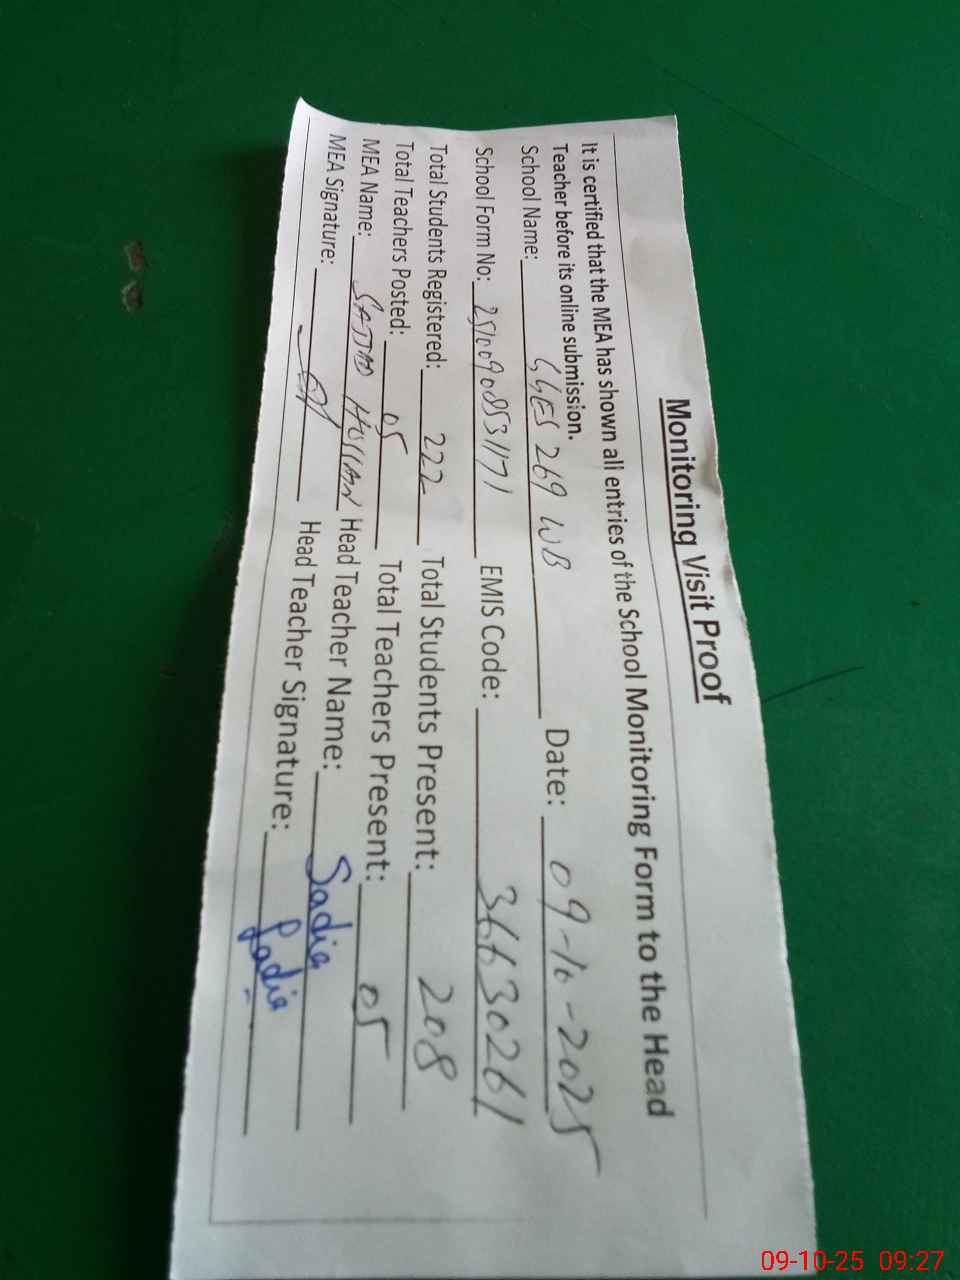 Monitoring Visit Proof
It is certified that the MEA has shown all entries of the School Monitoring Form to the Head
Teacher before its online submission.
School Name: GGES 269 WB Date: 09-10-2025
School Form No: 25100908531171 EMIS Code: 36630261
Total Students Registered: 222 Total Students Present: 208
Total Teachers Posted: 05 Total Teachers Present: 05
MEA Name: SAJJAD HUSSAIN Head Teacher Name: Sadia
MEA Signature: Head Teacher Signature: Sadia
09-10-25 09:27